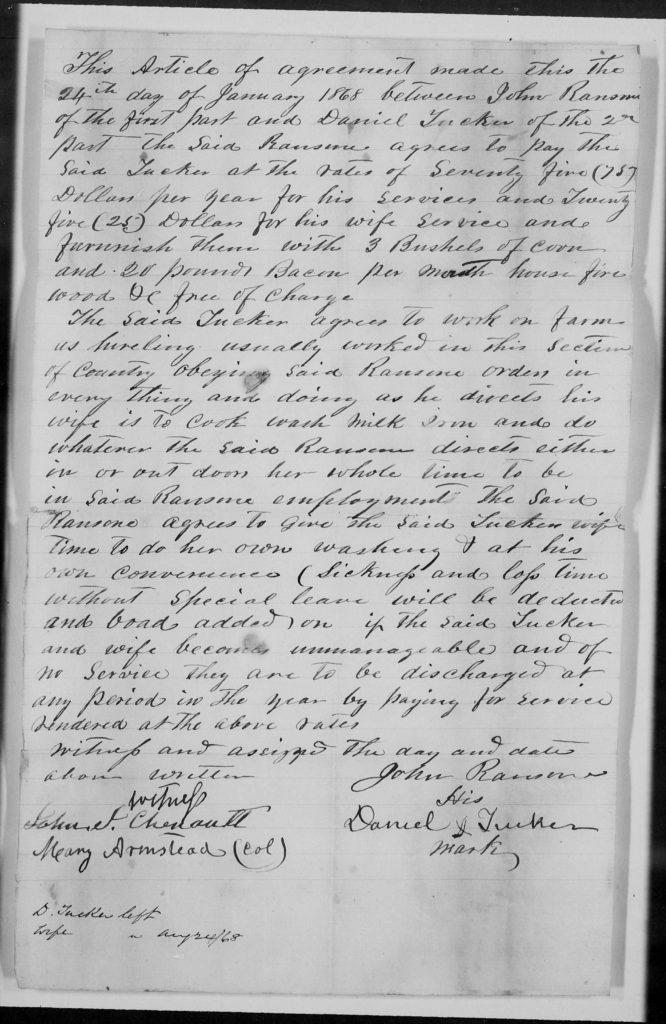 This Article of agreement made this the
24th day of January 1868 between John Ransone
of the first part and Daniel Tucker of the 2nd
part the Said Ransone agrees to pay the
Said Tucker at the rates of Seventy five (75)
Dollars per year for his Services and Twenty
five (25) Dollars for his wife Service and
furnish them with 3 Bushels of Corn
and 20 pounds Bacon per month house fire
wood &c free of Charge
The Said Tucker agrees to work on farm
as hireling usually worked in this Section
of Country obeying Said Ransone orders in
every thing and doing as he directs his
wife is to Cook wash milk Iron and do
whatever the Said Ransone directs either
in or out doors her whole time to be
in Said Ransone employment the Said
Ransone agrees to give the Said Tucker wife
time to do her own washing & at his
own Convenience (Sickness and loss time
without Special leave will be deducted
and boad added) on if the Said Tucker
and wife becomes unmanageable and of
no Service they are to be discharged at
any period in the year by paying for Service
rendered at the above rates
Witness and assigned the day and date
above written
John Ransone
Witness
His
John S. Chenault
Daniel X Tucker
Mary Armstead (Col)
mark
D. Tucker left
wife " Aug 24/68